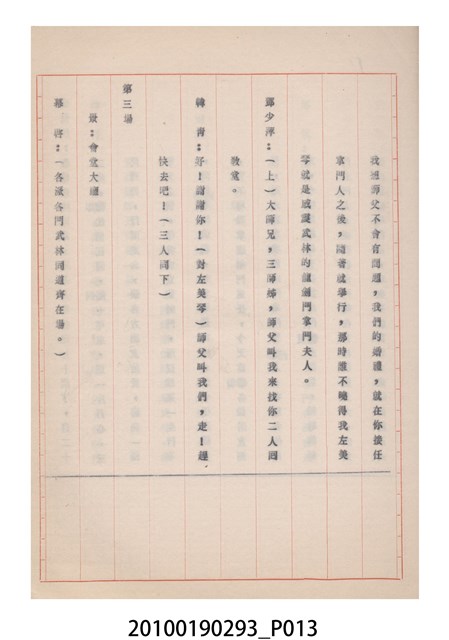 我想師父不會有問題，我們的婚禮，就在你接任
掌門人之後，隨著就舉行，那時誰不曉得我左美
琴就是威震武林的龍通門掌門夫人。
鄧少萍：（上）大師兄，三師姊，師父叫我來找你二人回
教堂。
韓　青：好！謝謝你！（對左美琴）師父叫我們，走！趕
快去吧！（三人同下）
第三場
景：會堂大廳
幕　啓：（各派各門武林同道齊在場。）
20100190293_P013